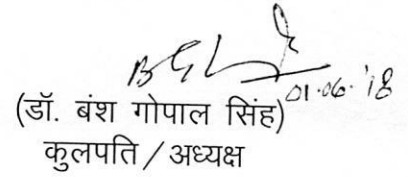 01.06.'18
(डॉ. बंश गोपाल सिंह)
कुलपति / अध्यक्ष